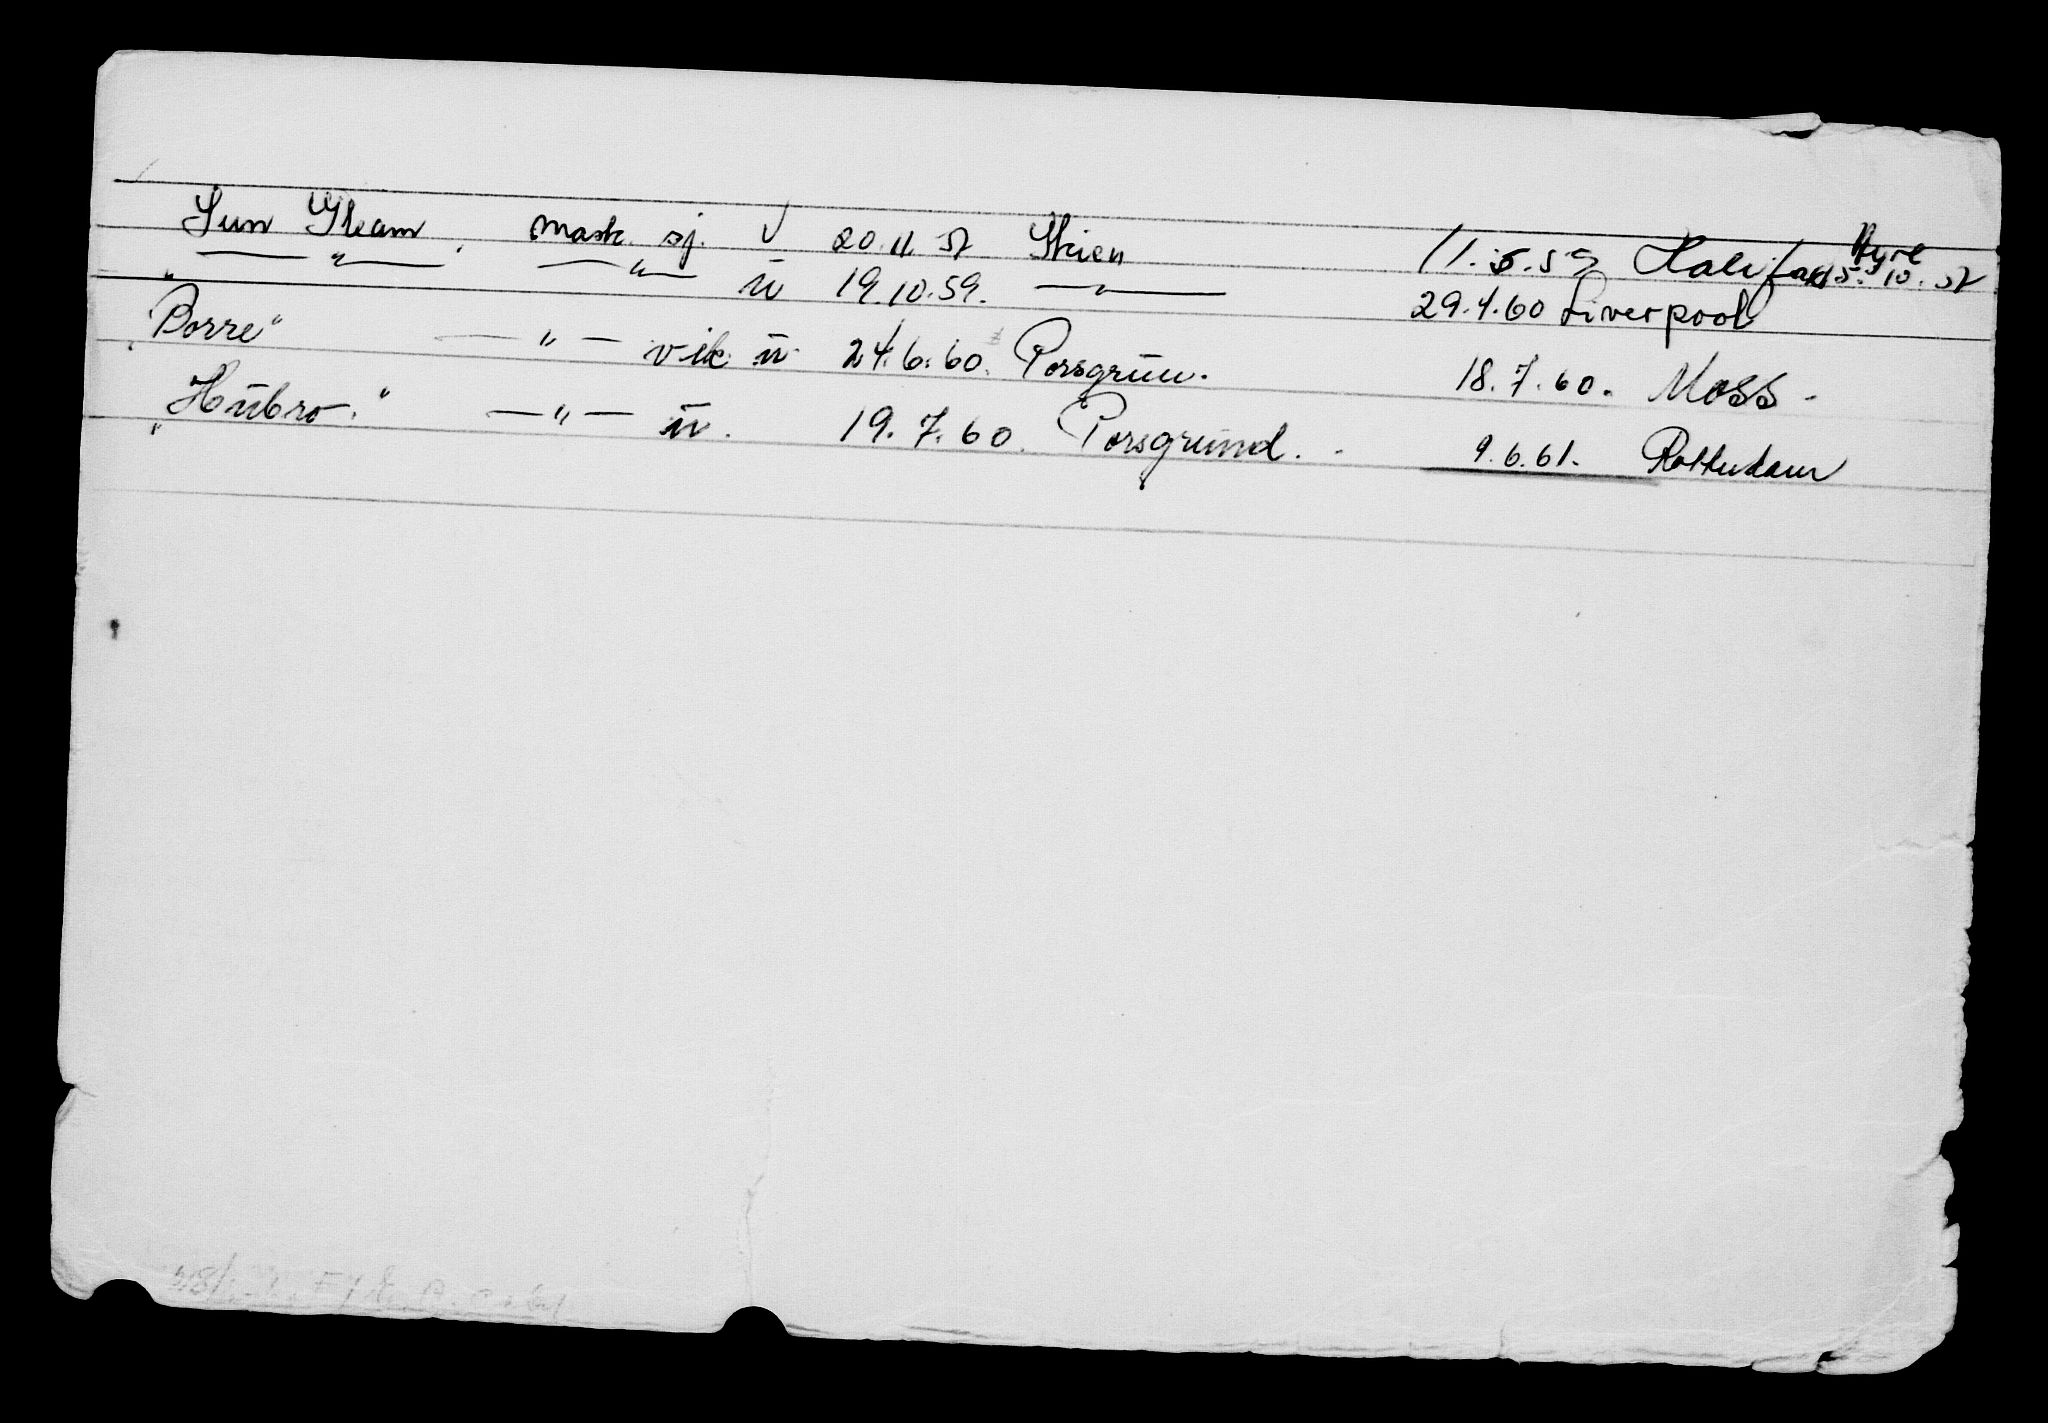 Sun Gleam, mask. sj. v 20.11.57 Skien 11.5.59 Halifax Hyre 15.10.57
— " — — " — ü 19.10.59. — " — 29.4.60 Liverpool
"Borre" — " — vik. ü. 24.6.60. Porsgrun. 18.7.60. Moss.
"Hübro." — " — ü. 19.7.60. Porsgrund. 9.6.61. Rotterdam